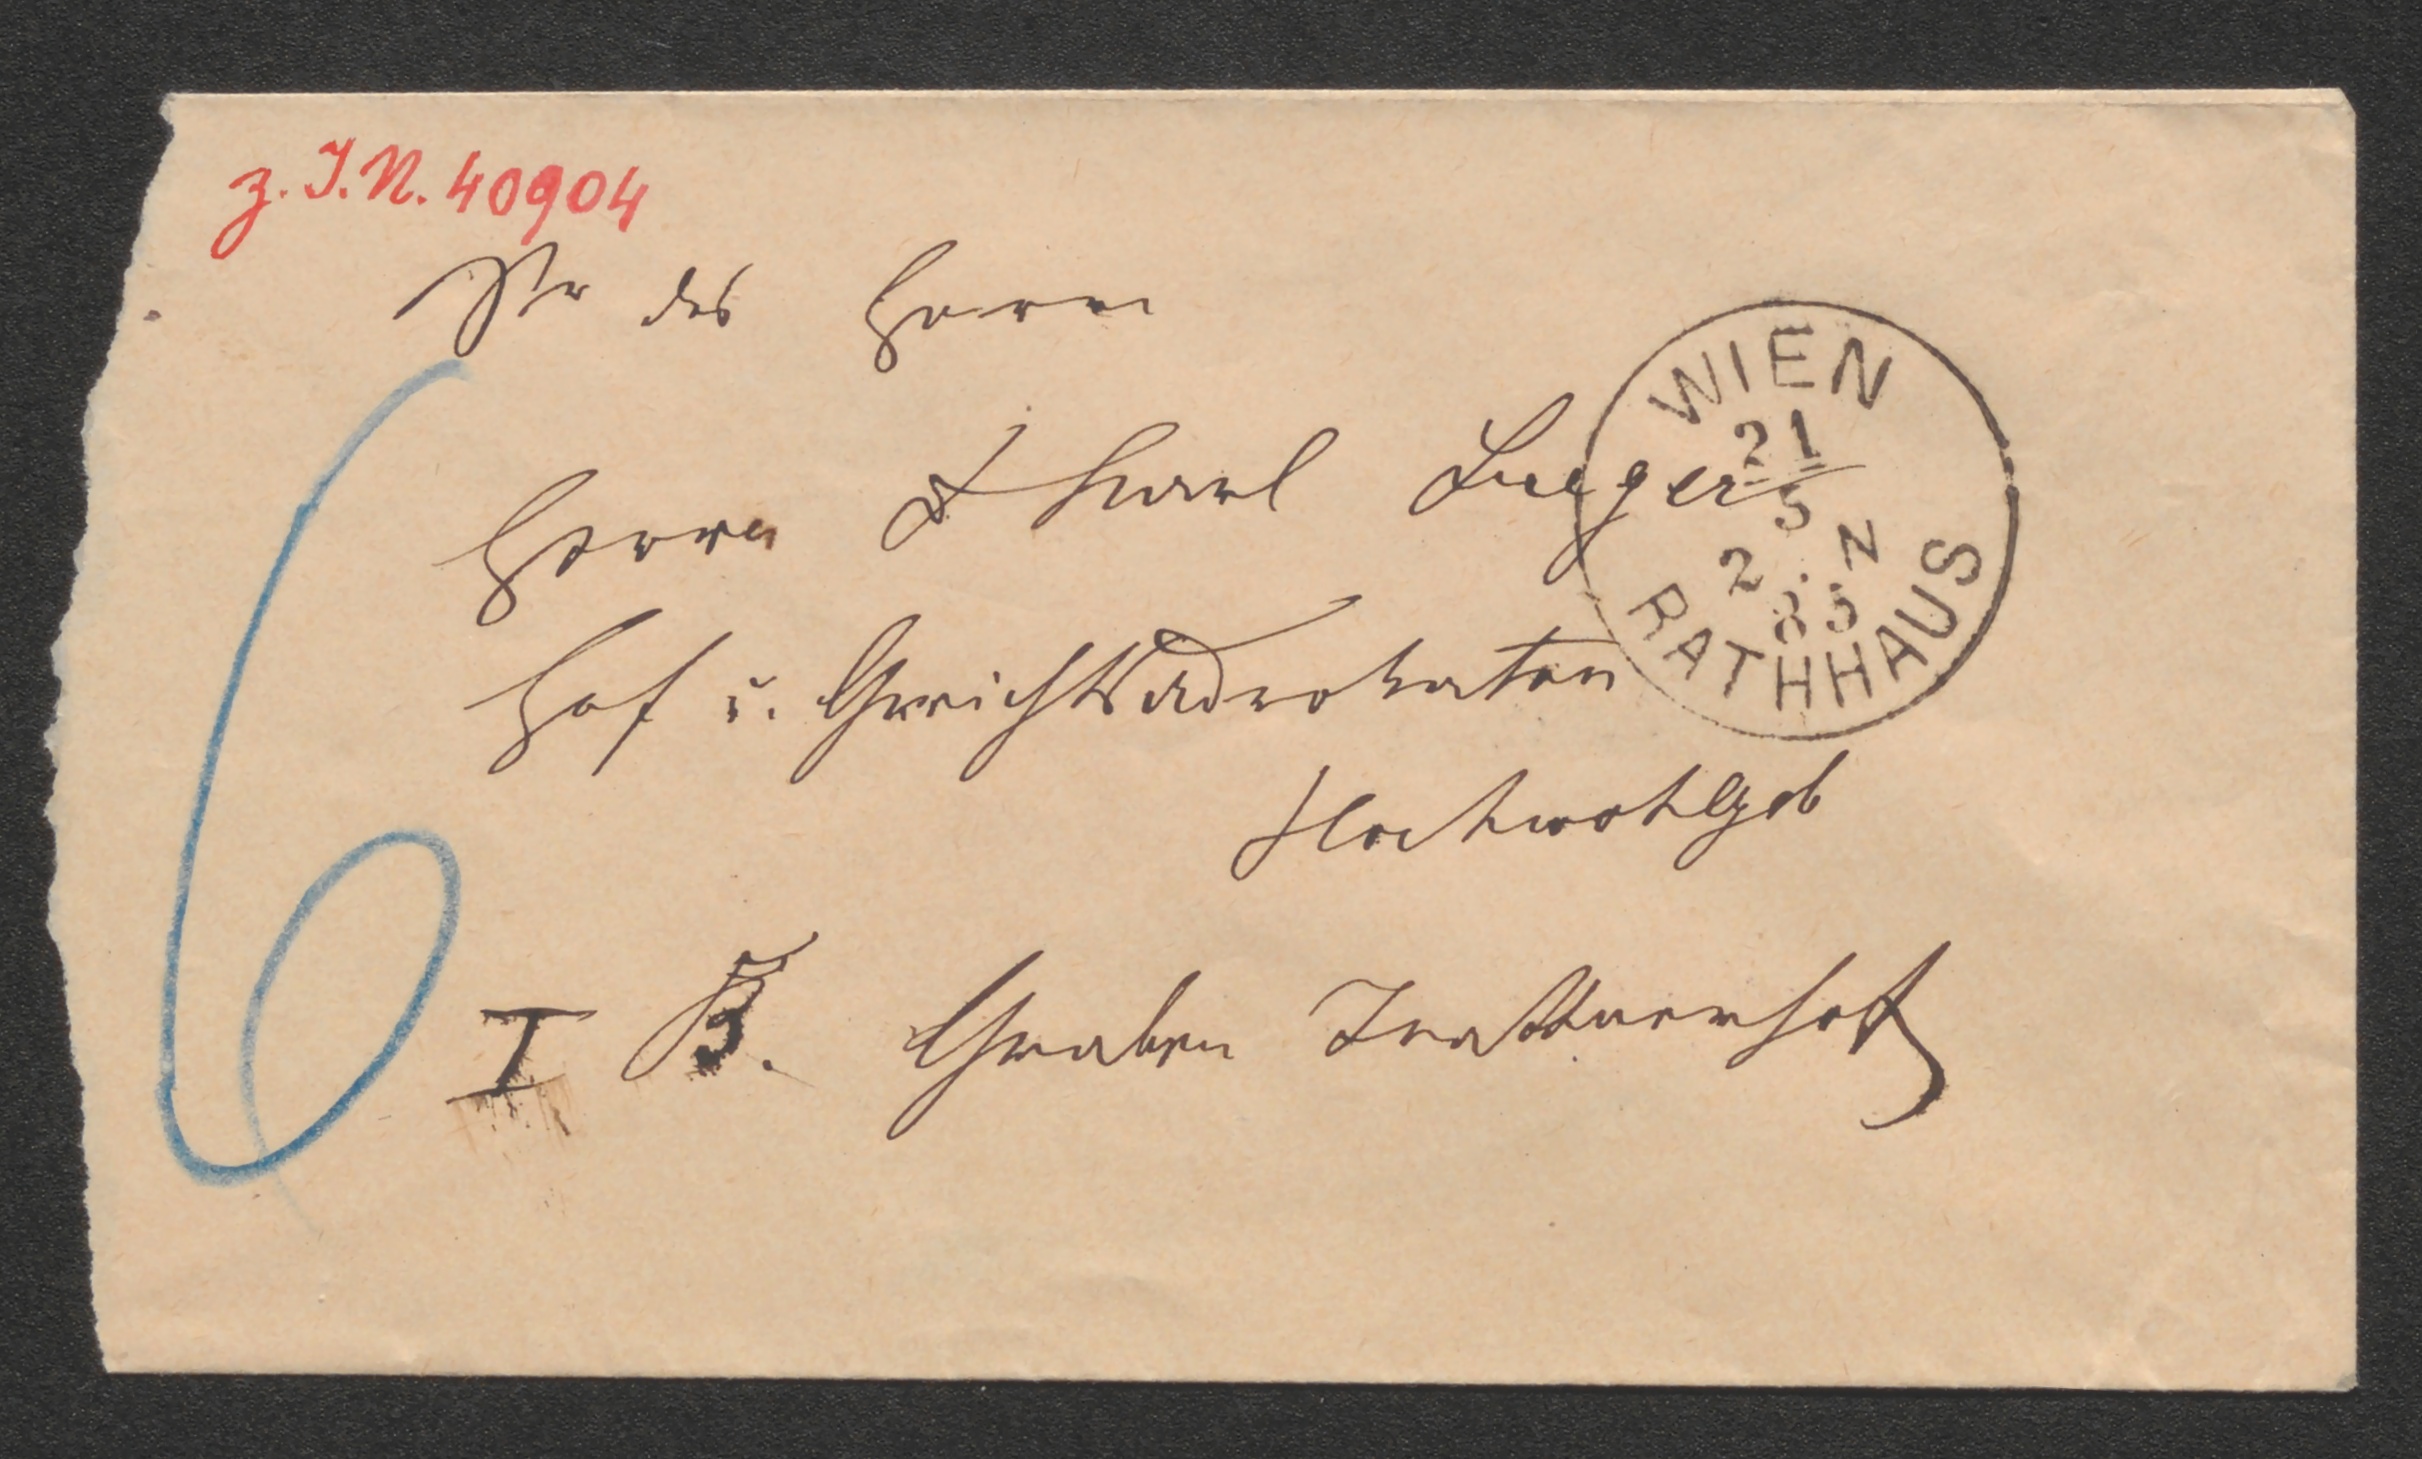 z. I. N. 40904
Sr des Herrn
Herrn Dr Karl Lueger
Hof u. Gerichtsadvokaten
Hochwohlgeb
I B. Graben Trattnerhof
6
WIEN
21
5
2 . N
85
RATHHAUS